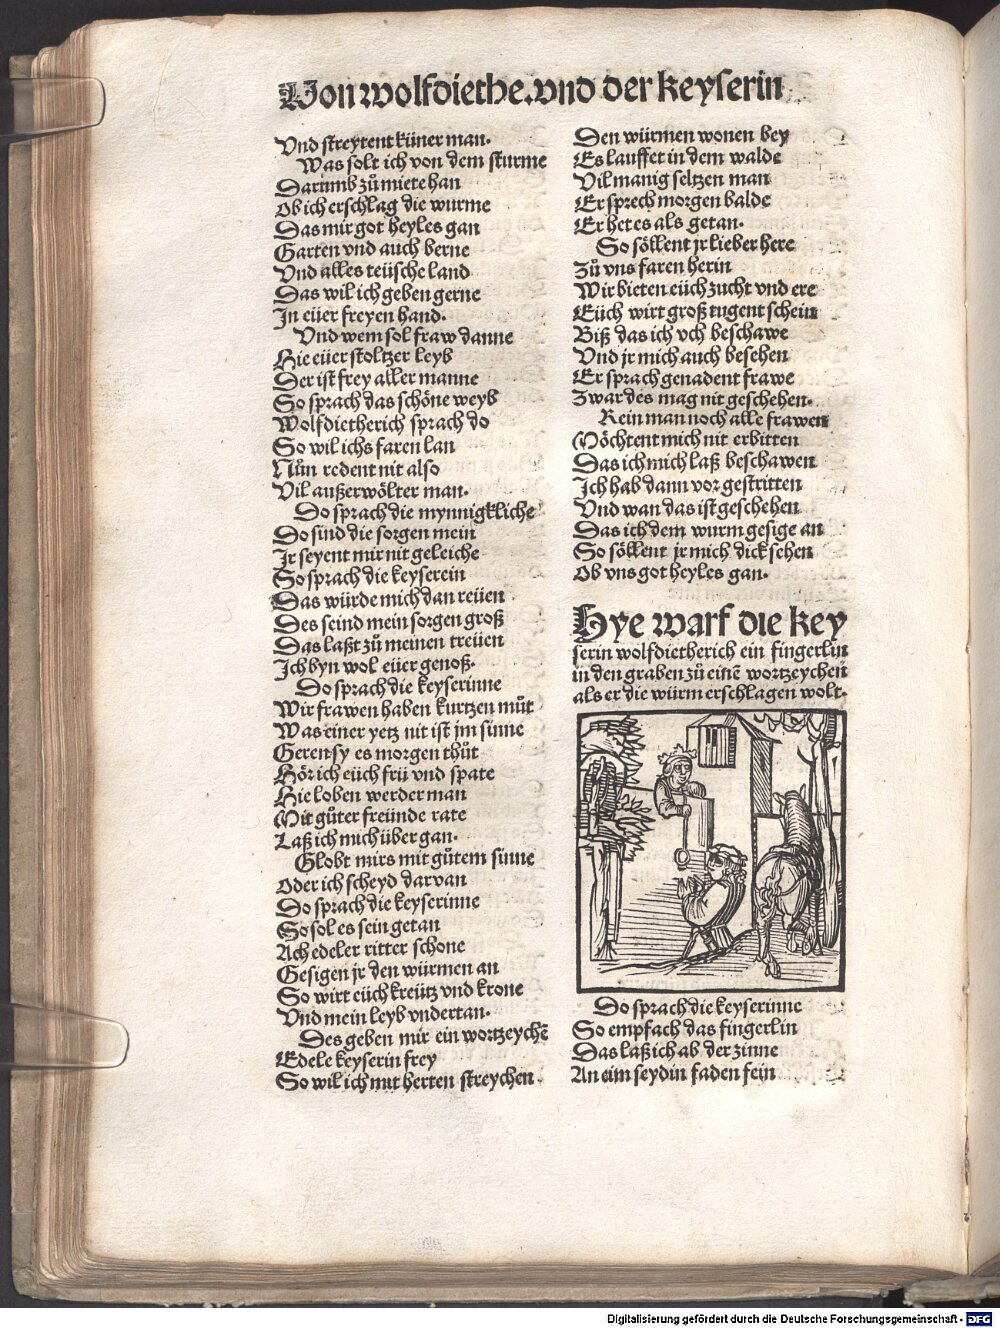 Von wolfdiethe. vnd der keyserin
Vnd streytent küner man.
Was solt ich von dem sturme
Darumb zů miete han
Ob ich erschlag die wurme
Das mir got heyles gan
Garten vnd auch berne
Vnd alles teüsche land
Das wil ich geben gerne
In eüer freyen hand.
Vnd wem sol fraw danne
Hie eüer stoltzer leyb
Der ist frey aller manne
So sprach das schöne weyb
Wolfdietherich sprach do
So wil ichs faren lan
Nůn redent nit also
Vil außerwölter man.
Do sprach die mynnigkliche
Do sind die sorgen mein
Ir seyent mir nit geleiche
So sprach die keyserein
Das würde mich dan reüen
Des seind mein sorgen groß
Das laßt zů meinen treüen
Ich byn wol eüer genoß.
Do sprach die keyserinne
Wir frawen haben kurtzen můt
Was einer yetz nit ist jm sinne
Geren sy es morgen thůt
Hör ich eüch frü vnd spate
Hie loben werder man
Mit gůter freünde rate
Laß ich mich über gan.
Globt mirs mit gůtem sinne
Oder ich scheyd darvan
Do sprach die keyserinne
So sol es sein getan
Ach edeler ritter schone
Gesigen jr den würmen an
So wirt eüch kreütz vnd krone
Vnd mein leyb vndertan.
Des geben mir ein wortzeychē
Edele keyserin frey
So wil ich mit herten streychen
Den würmen wonen bey
Es lauffet in dem walde
Vil manig seltzen man
Er sprech morgen balde
Er het es als getan.
So söllent jr lieber here
Zů vns faren herin
Wir bieten eüch zucht vnd ere
Eüch wirt groß tugent schein
Biß das ich vch beschawe
Vnd jr mich auch besehen
Er sprach genadent frawe
Zwar des mag nit geschehen.
Kein man noch alle frawen
Möchtent mich nit erbitten
Das ich mich laß beschawen
Ich hab dann vor gestritten
Vnd wan das ist geschehen
Das ich dem wurm gesige an
So söllent jr mich dick sehen
Ob vns got heyles gan.
Hye warf die key
serin wolfdietherich ein fingerlin
in den graben zů einē wortzeychen
als er die würm erschlagen wolt.
Do sprach die keyserinne
So empfach das fingerlin
Das laß ich ab der zinne
An eim seydin faden fein
Digitalisierung gefördert durch die Deutsche Forschungsgemeinschaft - DFG